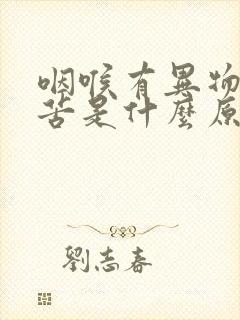 咽喉有異物
苦是什麼原
劉志春